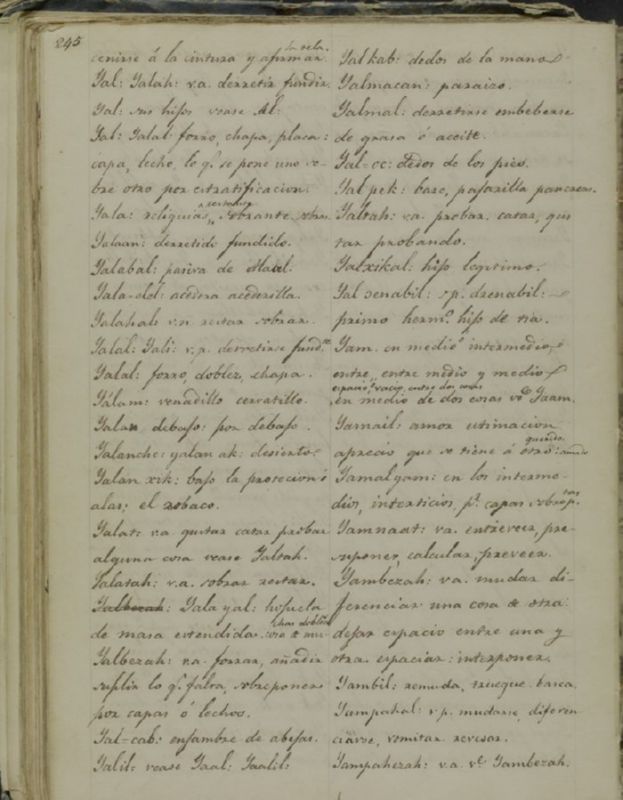 245
la tela.
ceñirse á la cintura y afirmar
Yal: Yalah: v.a. derretir fundir.
Yal: sus hijos vease Al:
Yal: Yalal forro, chapa, placa:
capa, lecho, lo q. se pone uno so-
bre otro por estratificacion:
Yala: reliquias, sobrante, sobras
Yalaan: derretido fundido.
Yalabal: pasiva de
Yala-elel: acedera acederilla.
Yalahal: v.n. restar sobrar.
Yalal: Yali: v.p. derretirse fundse.
Yalal: forro, doblez, chapa.
Yálam: venadillo cervatillo.
Yalan debajo: por debajo.
Yalanche: yalan ak: desierto
Yalan xik: bajo la proteccion ó
alas; el sobaco.
Yalat: v.a gustar catar probar
alguna cosa vease Yaltah.
Yalatah: v.a. sobrar restar.
Yalbezah: Yala yal: hojuela
de masa estendida. cosa de mu-
chas dobleces
Yalbezah: v.a. forrar, añadir
suplir lo q. falta, sobreponer
por capas ó lechos.
Yal-cab: enjambre de abejas.
Yalil: vease Yaal: Yaalil:
Yalkab: dedos de la mano
Yalmacan: paraizo.
Yalmal: derretirse embeberse
de grasa ó aceite.
Yal-oc: dedos de los pies.
Yal pek: bazo, pajarilla pancreas.
Yaltah: v.a. probar. catar, gus
tar probando.
Yalxikal: hijo legitimo.
Yal senabil: s.p. dzenabil:
primo hermo. hijo de tia.
Yam. en medio intermedio,
entre, entre medio y medio
espacio, vacio, entre dos cosas
en medio de dos cosas ve. Yaam.
Yamail: amor estimacion
aprecio que se tiene á otro: amado
querido.
Yamalyam: en los interme-
dios, intersticios, pr. capas sobrep.
tas
Yamnaat: v.a. entreveer, pre-
suponer, calcular, preveer.
Yambezah: v.a. mudar di-
ferenciar una cosa de otra
dejar espacio entre una y
otra. espaciar: interponer.
Yambil: remuda, trueque. barca.
Yampahal: v.p. mudarse, diferen
ciarse, vomitar revesar.
Yampahezah: v.a ve. Yambezah.